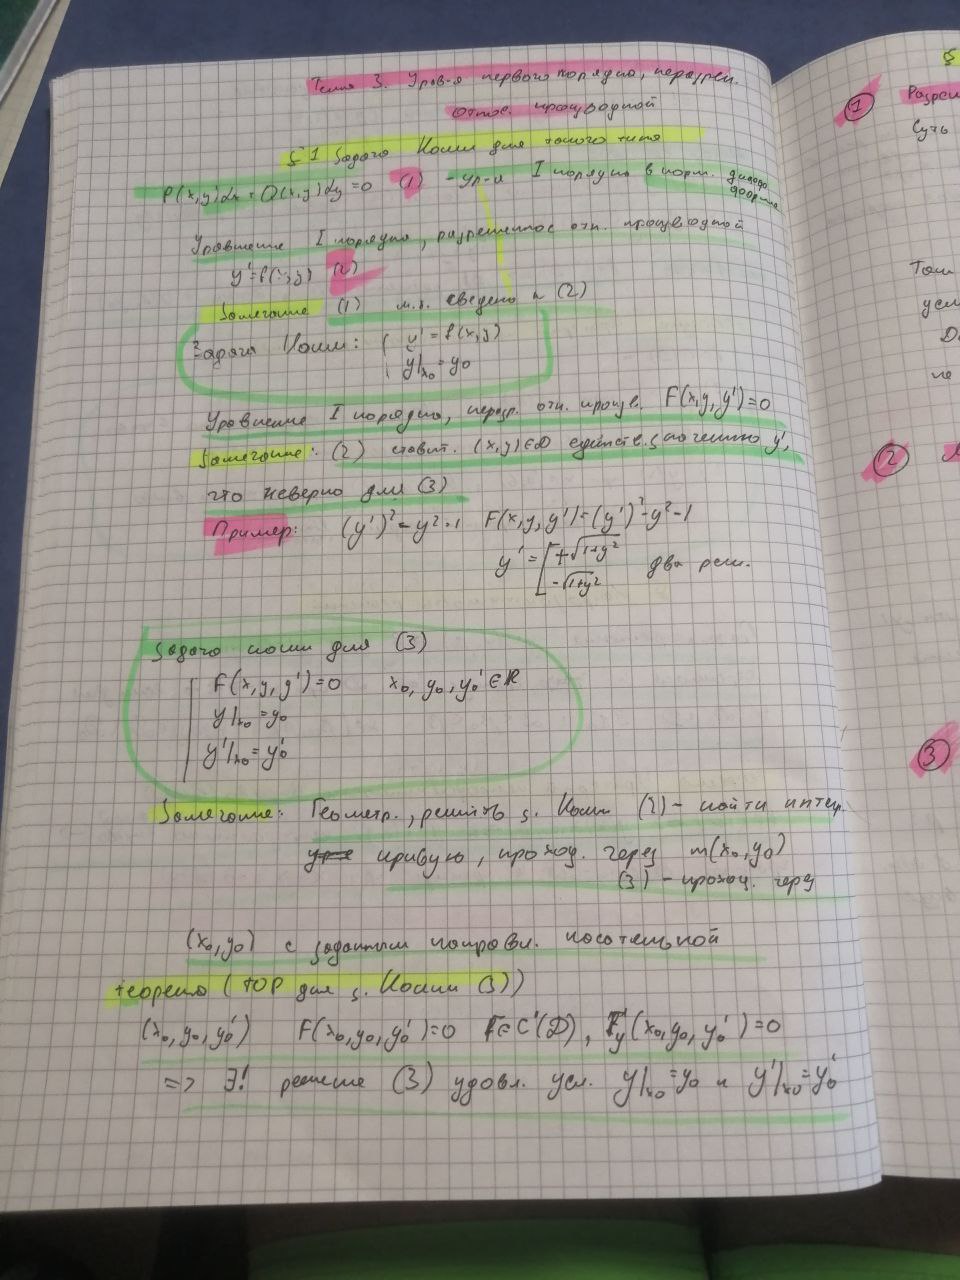 Тема 3. Уров-я первого порядка, неразреш.
относ. производной
§1 Задача Коши для такого типа
P(x,y)dx + Q(x,y)dy = 0 (1) - ур-я I порядка в норм. дифф. форме
Уравнение I порядка, разрешенное отн. производной
y' = f(x,y) (2)
Замечание (1) м.б. сведено к (2)
Задача Коши: { y' = f(x,y)
y|x₀ = y₀
Уравнение I порядка, неразр. отн. произв. F(x,y,y')=0
Замечание: (2) ставит. (x,y)∈D единств. значению y',
что неверно для (3)
Пример: (y')² - y² = 1 F(x,y,y') = (y')² - y² - 1
y' = [ +√1+y²
-√1+y² два реш.
Задача Коши для (3)
F(x,y,y')=0 x₀, y₀, y₀' ∈ R
y|x₀ = y₀
y'|x₀ = y₀'
Замечание: Геометр., решить з. Коши (2) - найти интегр.
кривую, проход. через m(x₀,y₀)
(3) - проход. через
(x₀,y₀) с заданным направл. касательной
Теорема (ТОР для з. Коши (3))
(x₀, y₀, y₀') F(x₀,y₀,y₀')=0 F∈C'(D), F'y'(x₀,y₀,y₀')=0
=> ∃! решение (3) удовл. усл. y|x₀ = y₀ и y'|x₀ = y₀'
§
1 Разреш
Суть
усл
не
2
3